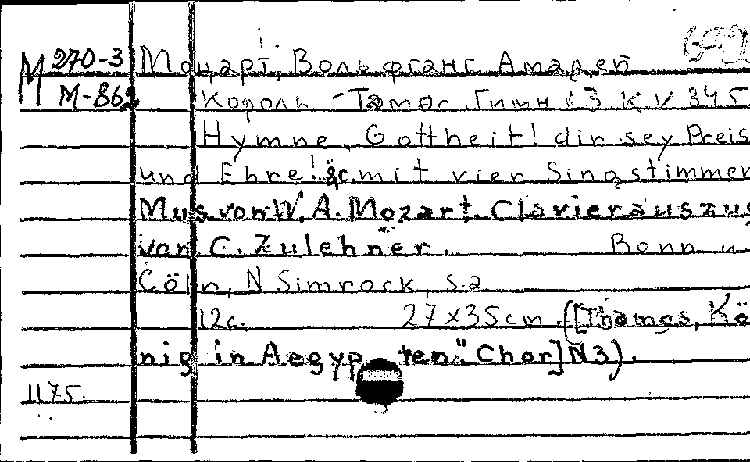 М 270-3 Моцарт, Вольфганг Амадей
М-862 Король Тамос. Гимн №3. K.V. 345
Hymne, Gottheit! dir sey Preis
und Ehre! &c. mit vier Singstimmen
Mus. von W. A. Mozart. Clavierauszug
von C. Zulehner. Bonn u
Cöln, N Simrock, s.a
12c. 27x35cm. ([Thamos, Kö
nig in Aegypten" Chor] N3).
1175